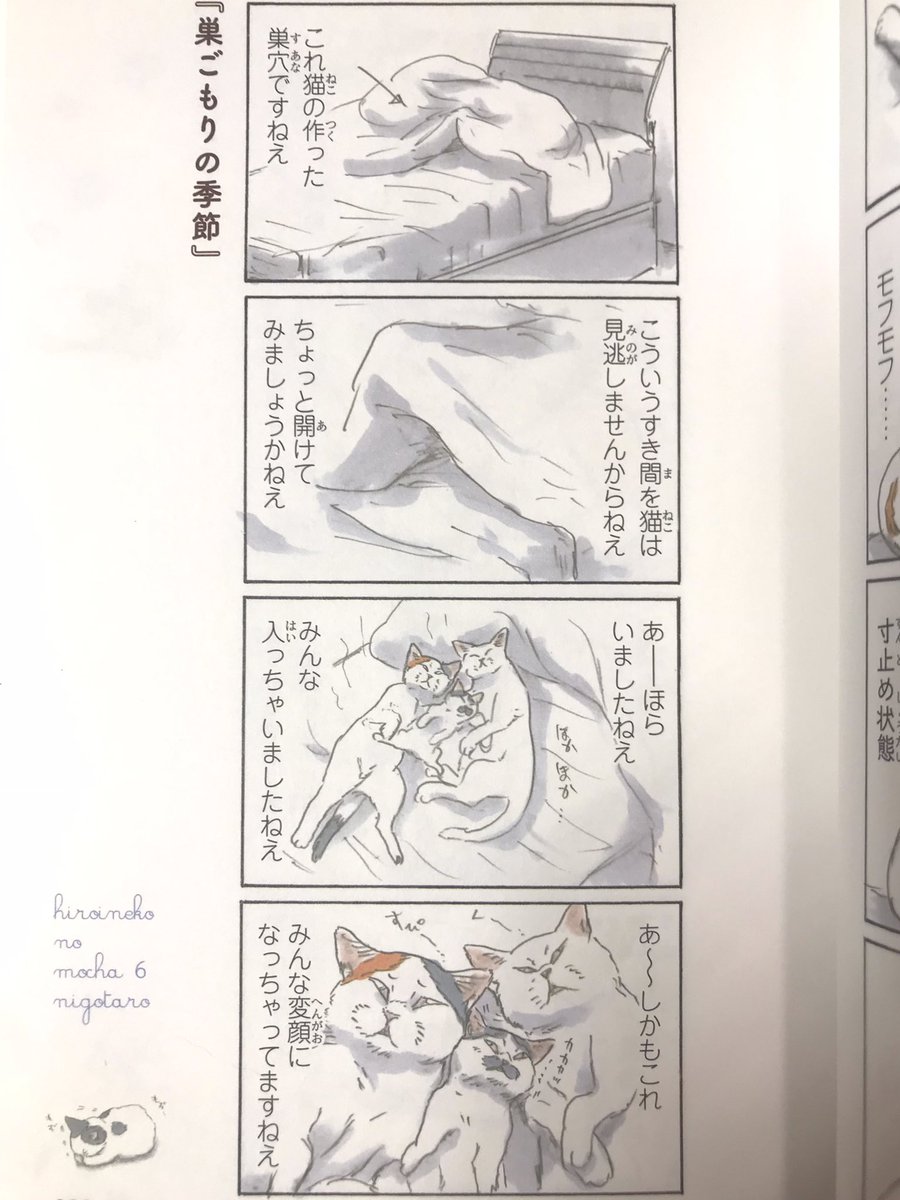 『巣ごもりの季節』
これ猫の作った
巣穴ですねえ
こういうすき間を猫は
見逃しませんからねえ
ちょっと開けて
みましょうかねえ
あーーほら
いましたねえ
ほか ほか…
みんな
入っちゃいましたねえ
あ〜〜しかもこれ
すぴ
みんな変顔に
なっちゃってますねえ
モフモフ……
寸止め状態
hiroineko
no
mocha 6
nigotaro